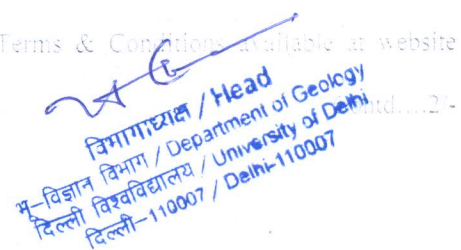 Terms & Conditions available at website
Contd....2/-
विभागाध्यक्ष / Head
भू-विज्ञान विभाग / Department of Geology
दिल्ली विश्वविद्यालय / University of Delhi
दिल्ली-110007 / Delhi-110007